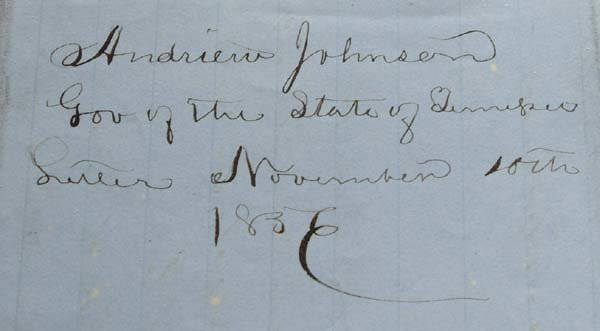 Andriew Johnson
Gov of the State of Tennessee
Letter November 10th
1856